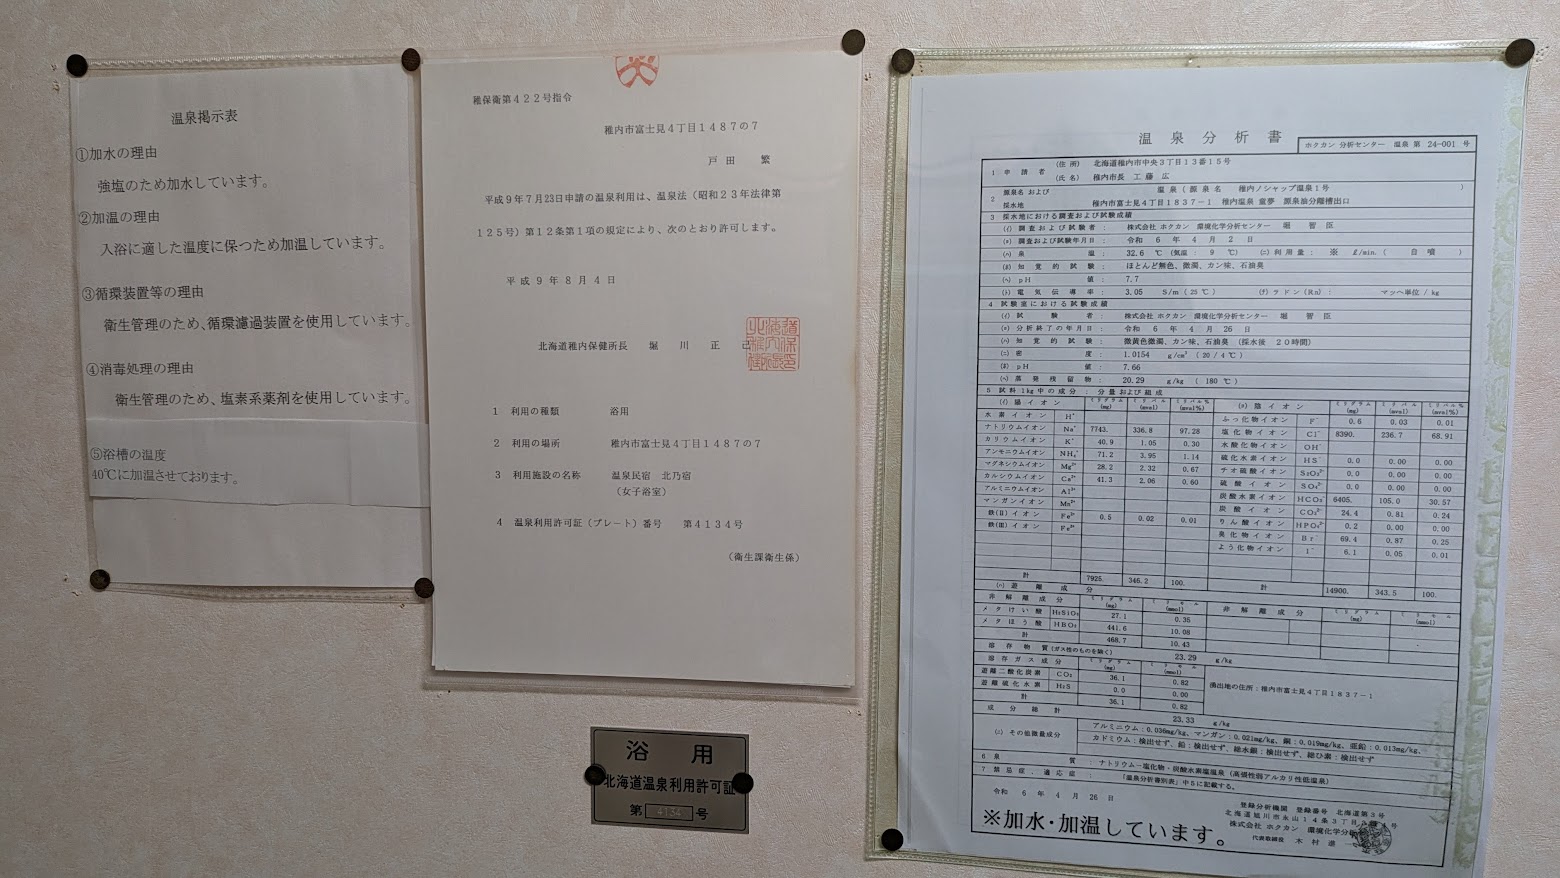 温泉掲示表
①加水の理由
強塩のため加水しています。
②加温の理由
入浴に適した温度に保つため加温しています。
③循環装置等の理由
衛生管理のため、循環濾過装置を使用しています。
④消毒処理の理由
衛生管理のため、塩素系薬剤を使用しています。
⑤浴槽の温度
40℃に加温させております。
稚保衛第422号指令
稚内市富士見4丁目1487の7
戸田 繁
平成9年7月23日申請の温泉利用は、温泉法(昭和23年法律第
125号)第12条第1項の規定により、次のとおり許可します。
平成9年8月4日
北海道稚内保健所長 堀川正己
1 利用の種類 浴用
2 利用の場所 稚内市富士見4丁目1487の7
3 利用施設の名称 温泉民宿 北乃宿
(女子浴室)
4 温泉利用許可証(プレート)番号 第4134号
(衛生課衛生係)
浴用
北海道温泉利用許可証
第 4134 号
温泉分析書
ホクカン 分析センター 温泉 第 24-001 号
1 申請者 (住所) 北海道稚内市中央3丁目13番15号
(氏名) 稚内市長 工藤 広
2 源泉名 および 温泉(源泉名 稚内ノシャップ温泉1号 )
採水地 稚内市富士見4丁目1837-1 稚内温泉 童夢 源泉油分離槽出口
3 採水地における調査および試験成績
(イ) 調査および試験者 : 株式会社 ホクカン 環境化学分析センター 堀 智臣
(ロ) 調査および試験年月日 : 令和 6 年 4 月 2 日
(ハ) 泉温 : 32.6 ℃ (気温 : 9 ℃) (ニ) 利用量 : ※ ℓ/min. ( 自噴 )
(ホ) 知覚的試験 : ほとんど無色、微濁、カン味、石油臭
(ヘ) pH値 : 7.7
(ト) 電気伝導率 : 3.05 S/m (25℃) (チ) ラドン (Rn) : マッヘ単位 / kg
4 試験室における試験成績
(イ) 試験者 : 株式会社 ホクカン 環境化学分析センター 堀 智臣
(ロ) 分析終了の年月日 : 令和 6 年 4 月 26 日
(ハ) 知覚的試験 : 微黄色微濁、カン味、石油臭 (採水後 20時間)
(ニ) 密度 : 1.0154 g/cm³ (20/4℃)
(ホ) pH値 : 7.66
(ヘ) 蒸発残留物 : 20.29 g/kg (180℃)
5 試料1kg中の成分 : 分量および組成
(イ) 陽イオン ミリグラム(mg) ミリバル(mval) ミリバル%(mval%) (ロ) 陰イオン ミリグラム(mg) ミリバル(mval) ミリバル%(mval%)
水素イオン H⁺ ふっ化物イオン F⁻ 0.6 0.03 0.01
ナトリウムイオン Na⁺ 7743. 336.8 97.28 塩化物イオン Cl⁻ 8390. 236.7 68.91
カリウムイオン K⁺ 40.9 1.05 0.30 水酸化物イオン OH⁻
アンモニウムイオン NH₄⁺ 71.2 3.95 1.14 硫化水素イオン HS⁻ 0.0 0.00 0.00
マグネシウムイオン Mg²⁺ 28.2 2.32 0.67 チオ硫酸イオン S₂O₃²⁻ 0.0 0.00 0.00
カルシウムイオン Ca²⁺ 41.3 2.06 0.60 硫酸イオン SO₄²⁻ 0.0 0.00 0.00
アルミニウムイオン Al³⁺ 炭酸水素イオン HCO₃⁻ 6405. 105.0 30.57
マンガンイオン Mn²⁺ 炭酸イオン CO₃²⁻ 24.4 0.81 0.24
鉄(II)イオン Fe²⁺ 0.5 0.02 0.01 りん酸イオン HPO₄²⁻ 0.2 0.00 0.00
鉄(III)イオン Fe³⁺ 臭化物イオン Br⁻ 69.4 0.87 0.25
よう化物イオン I⁻ 6.1 0.05 0.01
計 7925. 346.2 100. 計 14900. 343.5 100.
(ハ) 遊離成分
非解離成分 ミリグラム(mg) ミリモル(mmol) 非解離成分 ミリグラム(mg) ミリモル(mmol)
メタけい酸 H₂SiO₃ 27.1 0.35
メタほう酸 HBO₂ 441.6 10.08
計 468.7 10.43
溶存物質 (ガス性のものを除く) 23.29 g/kg
溶存ガス成分 ミリグラム(mg) ミリモル(mmol)
遊離二酸化炭素 CO₂ 36.1 0.82
遊離硫化水素 H₂S 0.0 0.00
計 36.1 0.82
湧出地の住所 : 稚内市富士見4丁目1837-1
成分総計 23.33 g/kg
(ニ) その他微量成分 アルミニウム : 0.036mg/kg、マンガン : 0.021mg/kg、銅 : 0.019mg/kg、亜鉛 : 0.013mg/kg、
カドミウム : 検出せず、鉛 : 検出せず、総水銀 : 検出せず、総ひ素 : 検出せず
6 泉質 : ナトリウム-塩化物・炭酸水素塩温泉 (高張性弱アルカリ性低温泉)
7 禁忌症、適応症 : 「温泉分析書別表」中5に記載する。
令和 6 年 4 月 26 日
登録分析機関 登録番号 北海道第3号
北海道旭川市永山14条3丁目
株式会社 ホクカン 環境化学分析
代表取締役 木村
※加水・加温しています。